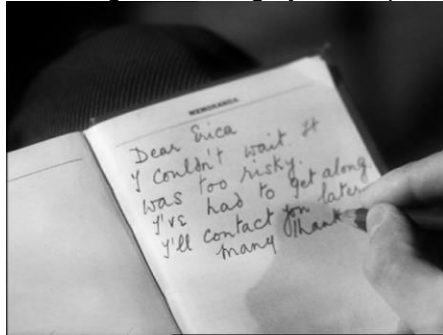 MEMORANDA
Dear Erica
I couldn't wait. It
was too risky.
I've had to get along
I'll contact you later
many thank